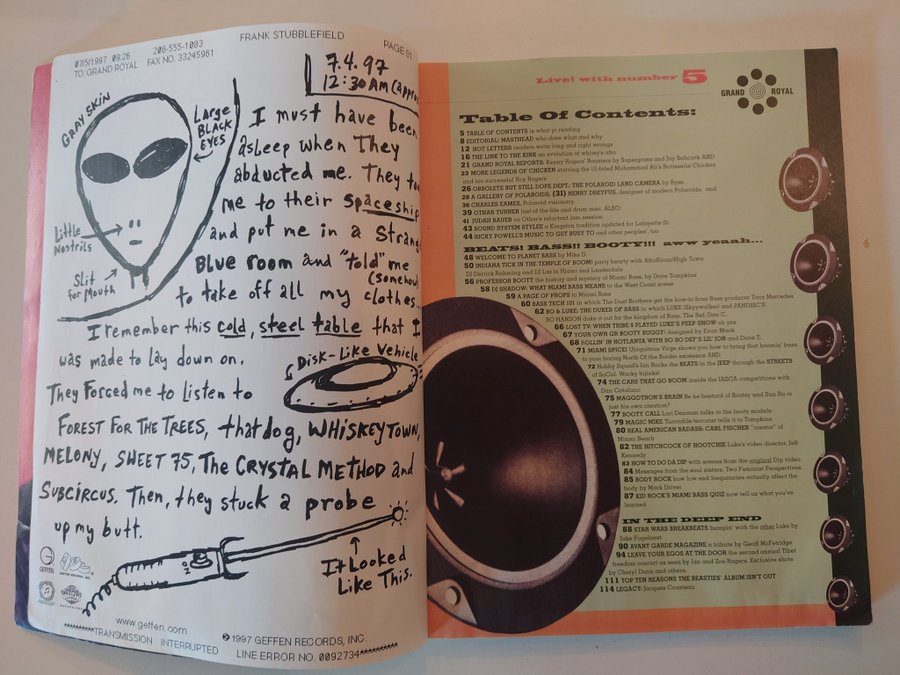 07/5/1997 09:26
206-555-1083
FRANK STUBBLEFIELD
PAGE 01
TO: GRAND ROYAL
FAX NO. 33245961
GRAY SKIN
LARGE
BLACK
EYES
Little
Nostrils
Slit
for Mouth
7.4.97
12:30 AM (appro
I must have been
asleep when They
abducted me. They to
me to their spaceship
and put me in a Strang
Blue room and "told" me
(somehow)
to take off all my clothes.
I remember this cold, steel table that I
was made to lay down on.
Disk-Like Vehicle
They Forced me to Listen to
FOREST FOR THE TREES, that dog, WHISKEYTOWN,
MELONY, SWEET 75, The CRYSTAL METHOD and
SUBCIRCUS. Then, they stuck a probe
up my butt.
It Looked
Like This.
ON
GEFFEN
www.geffen.com
*********TRANSMISSION INTERRUPTED
© 1997 GEFFEN RECORDS, INC.
LINE ERROR NO. 0092734*********
Live! with number 5
GRAND ROYAL
Table Of Contents:
5 TABLE OF CONTENTS is what yr reading
8 EDITORIAL/ MASTHEAD who does what and why
12 HOT LETTERS readers write long and right wrongs
16 THE LINE TO THE KINK an evolution of whitey's afro
21 GRAND ROYAL REPORTS: Kenny Rogers' Roasters by Supergrass and Jay Babcock AND
23 MORE LEGENDS OF CHICKEN starring the ill-fated Muhammad Ali's Rotisserie Chicken
and too successful Roy Rogers
26 OBSOLETE BUT STILL DOPE DEPT.: THE POLAROID LAND CAMERA by Ryze,
28 A GALLERY OF POLAROIDS, (31) HENRY DREYFUS, designer of modern Polaroids, and
36 CHARLES EAMES, Polaroid visionary
39 OTHAR TURNER last of the fife and drum men. ALSO:
41 JUDAH BAUER on Othar's reluctant jam session
43 SOUND SYSTEM STYLEE a Kingston tradition updated for Lafayette St.
44 RICKY POWELL'S MUSIC TO GET BUSY TO and other peoples', too
BEATS! BASS!! BOOTY!!! aww yeaah...
48 WELCOME TO PLANET BASS by Mike D.
50 INDIANA TICK IN THE TEMPLE OF BOOM! party hearty with AfroRican/High Town
DJ Derrick Rahming and DJ Lex in Miami and Lauderdale
56 PROFESSOR BOOTY (the history and mystery of Miami Bass) by Dave Tompkins
58 DJ SHADOW: WHAT MIAMI BASS MEANS to the West Coast scene
59 A PAGE OF PROPS to Miami Bass
60 BASS TECH 101 in which The Dust Brothers get the how-to from Bass producer Tony Mercedes
62 BO & LUKE: THE DUKES OF BASS in which LUKE (Skyywalker) and PANDISC'S
BO HANSON duke it out for the kingdom of Bass. The Ref: Dan C.
66 LOST TV: WHEN TRIBE 8 PLAYED LUKE'S PEEP SHOW oh yes
67 YOUR OWN GR BOOTY BUGGY! designed by Evan Mack
68 ROLLIN' IN HOTLANTA WITH SO SO DEF'S LIL' JON and Dave T.
71 MIAMI SPICE! Ubiquitous Virgo shows you how to bring that boomin' bass
to your boring North Of the Border existence AND
72 Hobby Squad's Ian Rocks the BEATS in the JEEP through the STREETS
of SoCal. Wacky hijinks!
74 THE CARS THAT GO BOOM inside the IASCA competitions with
Dan Catalano
75 MAGGOTRON'S BRAIN Be he bastard of Bootsy and Sun Ra or
just his own creation?
77 BOOTY CALL Lori Desmon talks to the booty models
79 MAGIC MIKE Turntable terrorist tells it to Tompkins
80 REAL AMERICAN BADASS: CARL FISCHER "creator" of
Miami Beach
82 THE HITCHCOCK OF HOOTCHIE Luke's video director, Jeff
Kennedy
83 HOW TO DO DA DIP with scenes from the original Dip video.
84 Messages from the soul sisters: Two Feminist Perspectives.
85 BODY ROCK how low end frequencies actually affect the
body by Mark Driver.
87 KID ROCK'S MIAMI BASS QUIZ now tell us what you've
learned
IN THE DEEP END
88 STAR WARS BREAKBEATS bumpin' with the other Luke by
Jake Fogelnest
90 AVANT GARDE MAGAZINE a tribute by Geoff McFetridge
94 LEAVE YOUR EGOS AT THE DOOR the second annual Tibet
freedom concert as seen by Ian and Zoe Rogers. Exclusive shots
by Cheryl Dunn and others.
111 TOP TEN REASONS THE BEASTIES' ALBUM ISN'T OUT
114 LEGACY: Jacques Cousteau